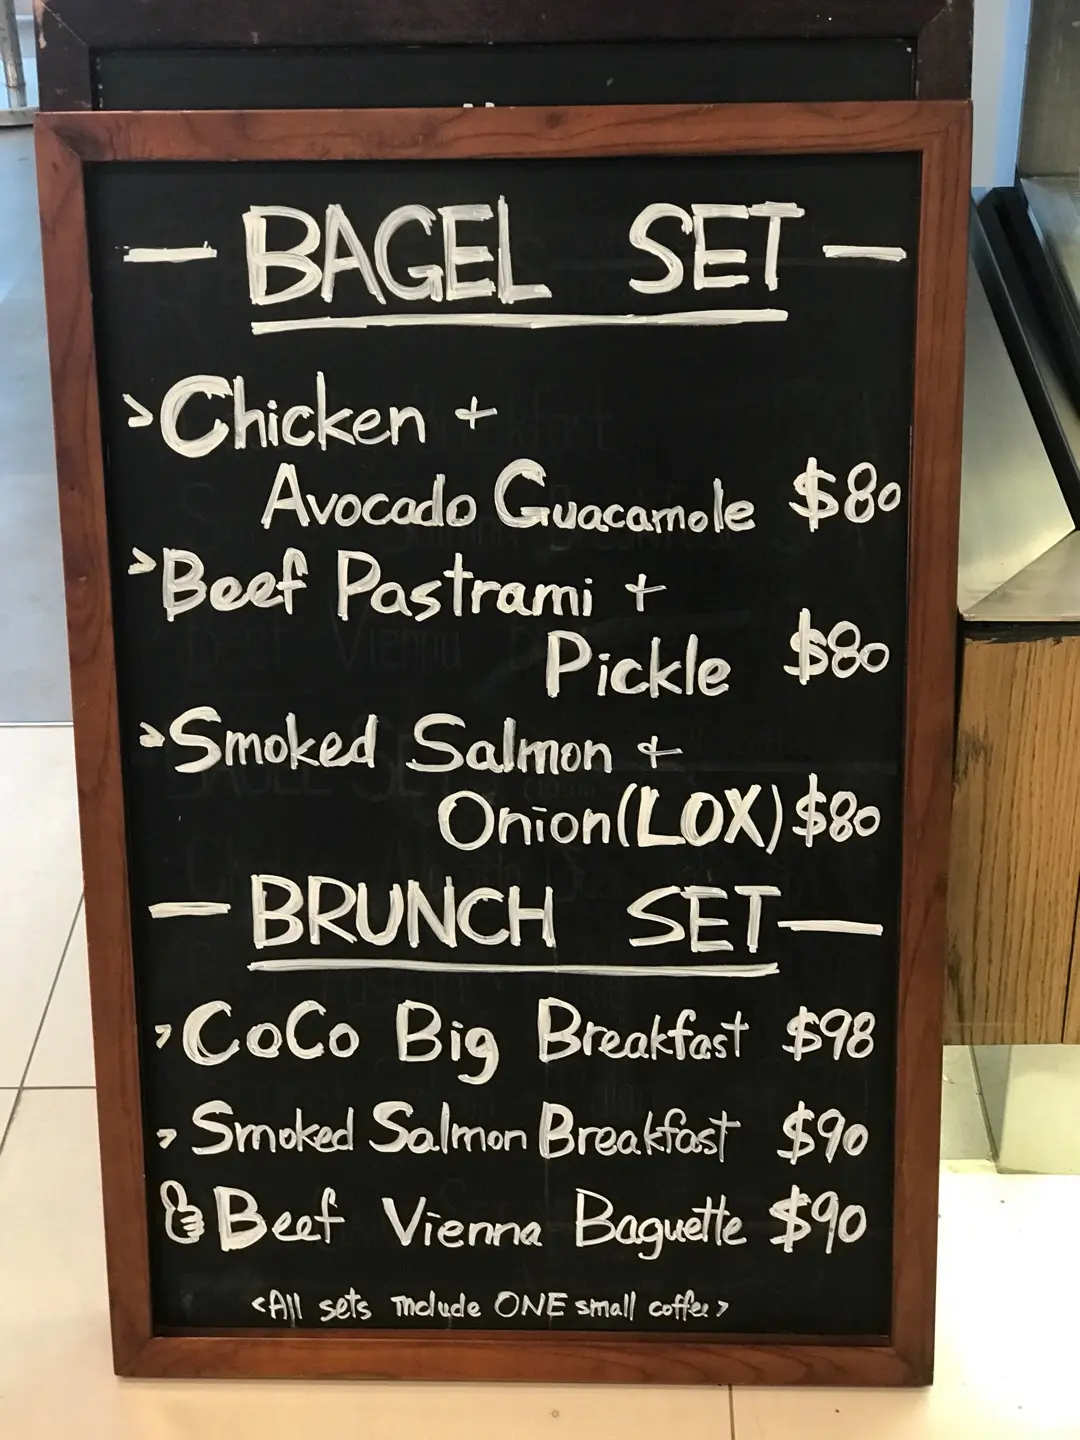 — BAGEL SET —
> Chicken +
Avocado Guacamole $80
> Beef Pastrami +
Pickle $80
> Smoked Salmon +
Onion (LOX) $80
— BRUNCH SET —
> CoCo Big Breakfast $98
> Smoked Salmon Breakfast $90
Beef Vienna Baguette $90
<All sets include ONE small coffee>